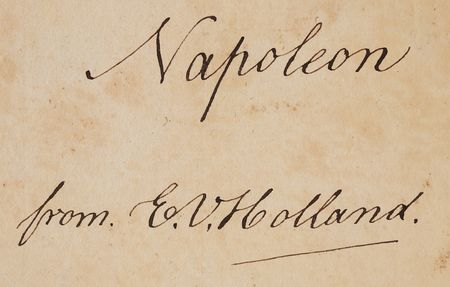 Napoleon
from. E.V. Holland.